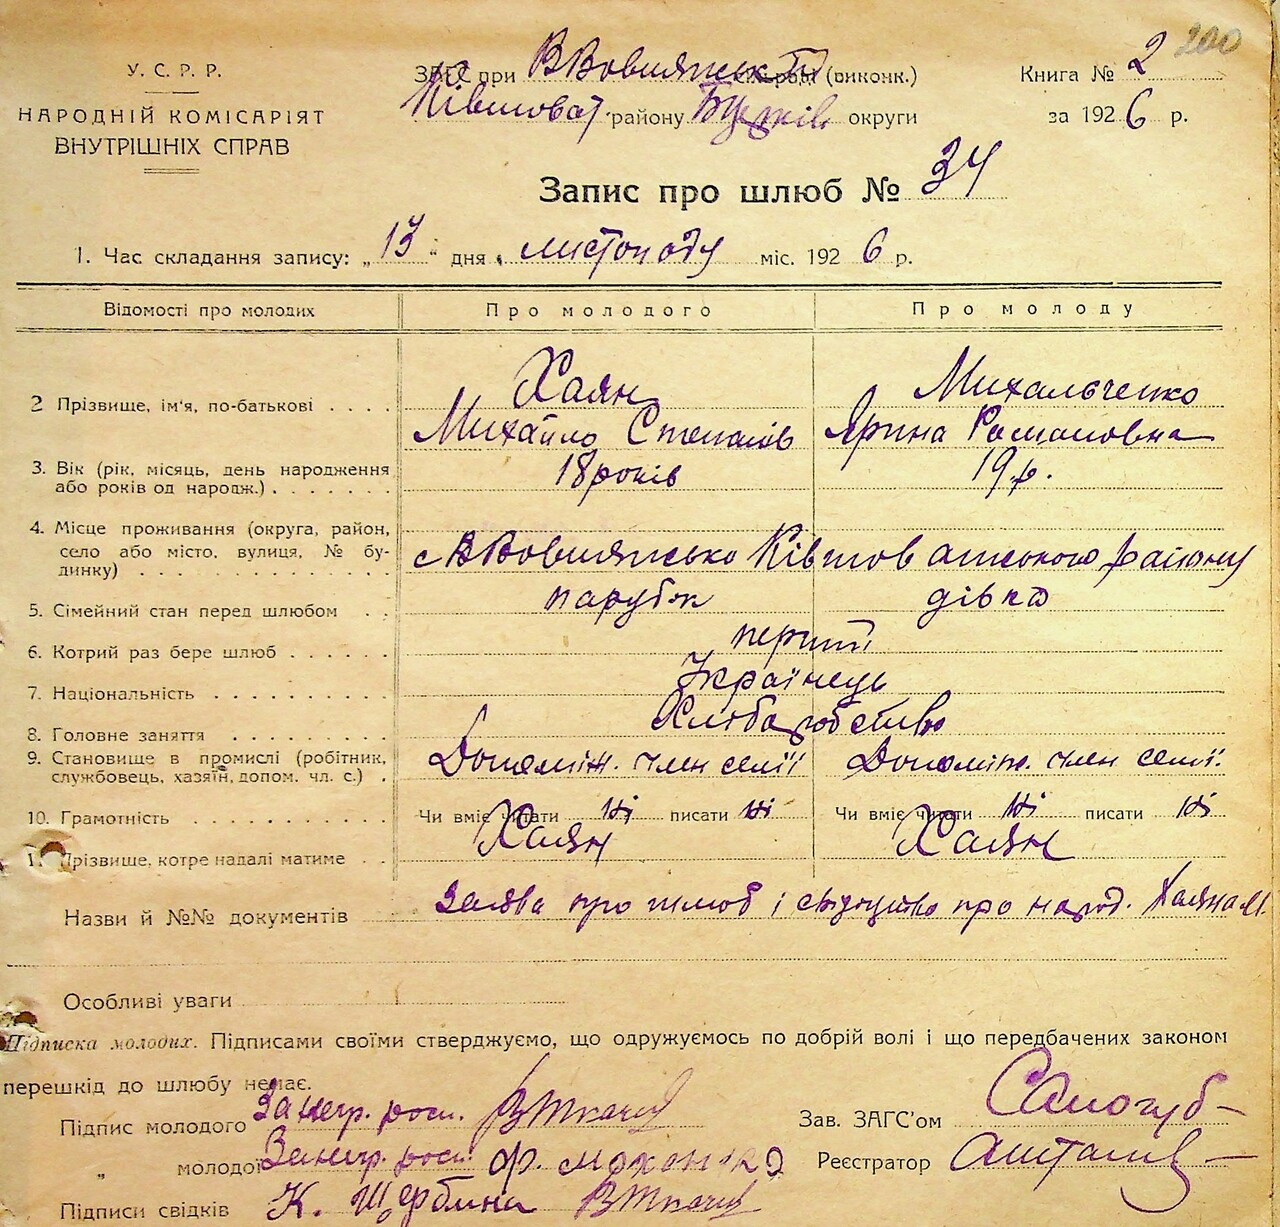 200
У. С. Р. Р.
НАРОДНІЙ КОМІСАРІЯТ
ВНУТРІШНІХ СПРАВ
ЗАГС при В Вовнянськ сільраді (виконк.)
Ківшоват. району Білоцерків. округи
Книга № 2
за 1926 р.
Запис про шлюб № 34
1. Час складання запису: „13" дня листопаду міс. 1926 р.
Відомості про молодих
Про молодого
Про молоду
2 Прізвище, ім'я, по-батькові . . . .
Хаян
Михайло Степанів
Михальченко
Ярина Романовна
3. Вік (рік, місяць, день народження
або років од народж.) . . . . . . .
18 років
19 р.
4. Місце проживання (округа, район,
село або місто, вулиця, № бу-
динку) . . . . . . . . . . . . .
с В Вовнянсько Ківшоватського району
5. Сімейний стан перед шлюбом . .
парубок
дівка
6. Котрий раз бере шлюб . . . . . .
перший
7. Національність . . . . . . . . . .
Українець
8. Головне заняття . . . . . . . . .
Хліборобство
9. Становище в промислі (робітник,
службовець, хазяїн, допом. чл. с.) .
Допоміж. член семїї
Допоміж. член семїї.
10. Грамотність . . . . . . . . . . .
Чи вміє читати Ні писати Ні
Чи вміє читати Ні писати Ні
11. Прізвище, котре надалі матиме . .
Хаян
Хаян
Назви й №№ документів Заява про шлюб і свідоцтво про народ. Хаяна М.
Особливі уваги
Підписка молодих. Підписами своїми стверджуємо, що одружуємось по добрій волі і що передбачених законом
перешкід до шлюбу немає.
Підпис молодого За негр. росп. В Ткачук
„ молодої За негр. росп. Ф.
Підписи свідків К. Щербина В Ткачук
Зав. ЗАГС'ом Самогуб
Реєстратор